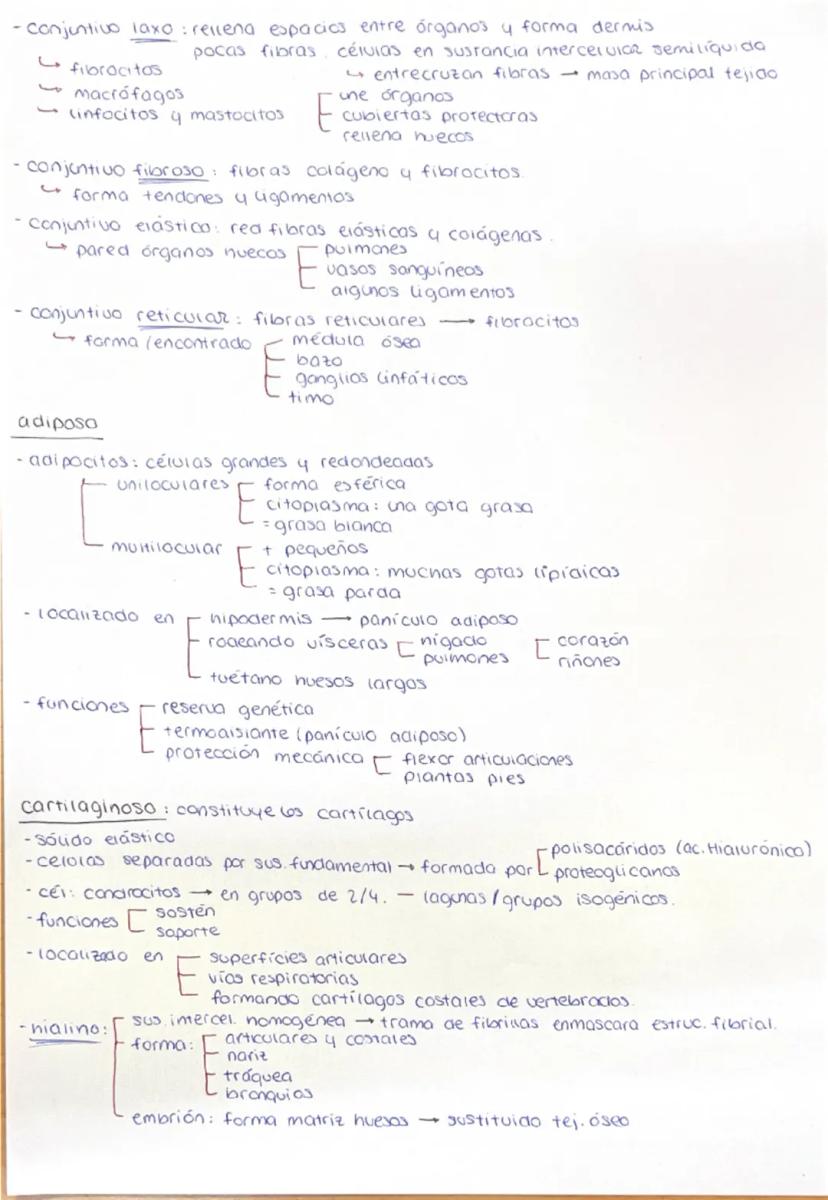 - conjuntivo laxo : rellena espacios entre órganos y forma dermis
pocas fibras. células en sustancia intercelular semilíquida
↳ fibrocitos ↳ entrecruzan fibras → masa principal tejido
↳ macrófagos une órganos
↳ linfocitos y mastocitos cubiertas protectoras
rellena huecos
- conjuntivo fibroso : fibras colágeno y fibrocitos.
↳ forma tendones y ligamentos
- conjuntivo elástico: red fibras elásticas y colágenas.
↳ pared órganos huecos pulmones
vasos sanguíneos
algunos ligamentos
- conjuntivo reticular : fibras reticulares → fibrocitos
↳ forma/encontrado médula ósea
bazo
ganglios linfáticos
timo
adiposo
- adipocitos: células grandes y redondeadas
uniloculares forma esférica
citoplasma: una gota grasa
= grasa blanca
multilocular + pequeños
citoplasma: muchas gotas lipídicas
= grasa parda
- localizado en hipodermis → panículo adiposo
rodeando vísceras hígado corazón
pulmones riñones
tuétano huesos largos
- funciones reserva genética
termoaislante (panículo adiposo)
protección mecánica flexor articulaciones
plantas pies
cartilaginoso : constituye los cartílagos
- sólido elástico
- células separadas por sus. fundamental → formada por polisacáridos (ac. Hialurónico)
proteoglicanos
- cél: condrocitos → en grupos de 2/4. — lagunas/grupos isogénicos.
- funciones sostén
soporte
- localizado en superfícies articulares
vías respiratorias
formando cartílagos costales de vertebrados.
- hialino: sus. intercel. homogénea → trama de fibrillas enmascara estruc. fibrial.
forma: articulares y costales
nariz
tráquea
bronquios
embrión: forma matriz huesos → sustituido tej. óseo